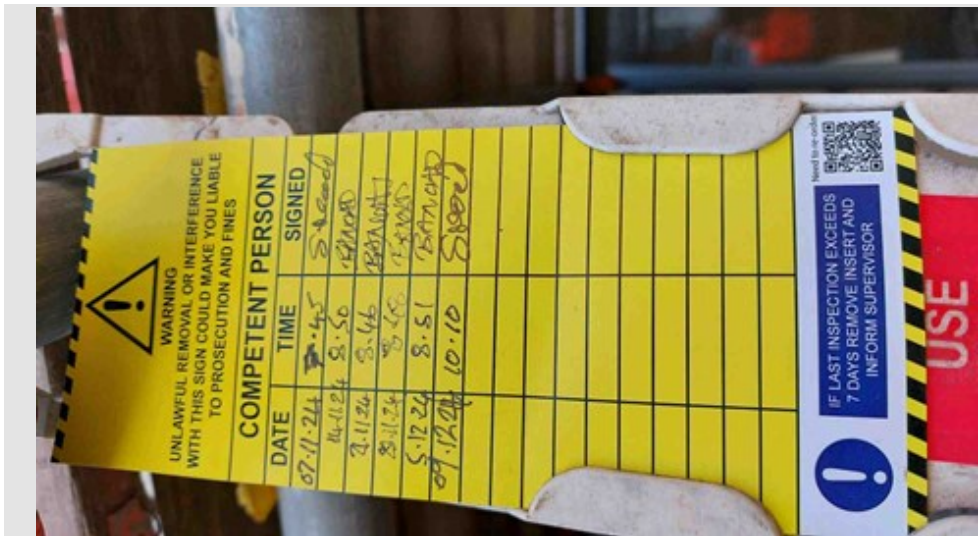 WARNING
UNLAWFUL REMOVAL OR INTERFERENCE
WITH THIS SIGN COULD MAKE YOU LIABLE
TO PROSECUTION AND FINES
COMPETENT PERSON
DATE TIME SIGNED
07.11.24 .45
14.11.24 8.50
21.11.24 8.46
28.11.24 8.48
5.12.24 8.51
09.12.24 10.10
Need to re-order
IF LAST INSPECTION EXCEEDS
7 DAYS REMOVE INSERT AND
INFORM SUPERVISOR
USE